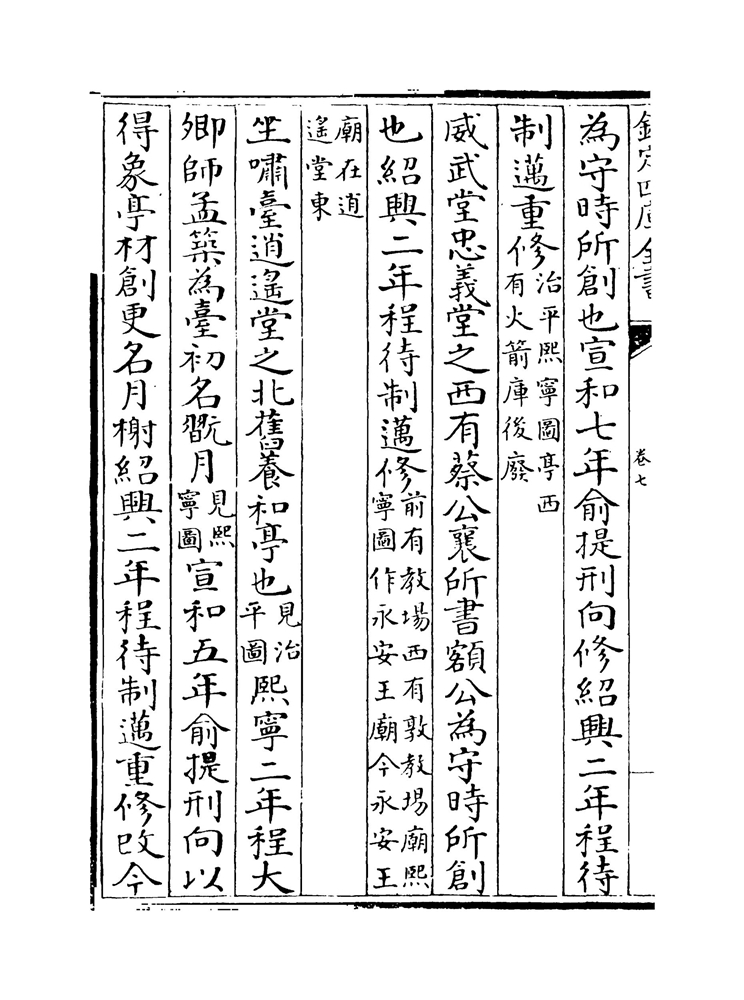 欽定四庫全書
卷七
為守時所創也宣和七年俞提刑向修紹興二年程待
制邁重修治平熙寧圖亭西有火箭庫後廢
威武堂忠義堂之西有蔡公襄所書額公為守時所創
也紹興二年程待制邁修前有教場西有敦教場廟熙寧圖作永安王廟今永安王
廟在逍遙堂東
坐嘯臺逍遙堂之北舊養和亭也見治平圖熙寧二年程大
卿師孟築為臺初名翫月見熙寧圖宣和五年俞提刑向以
得象亭材創更名月榭紹興二年程待制邁重修改今